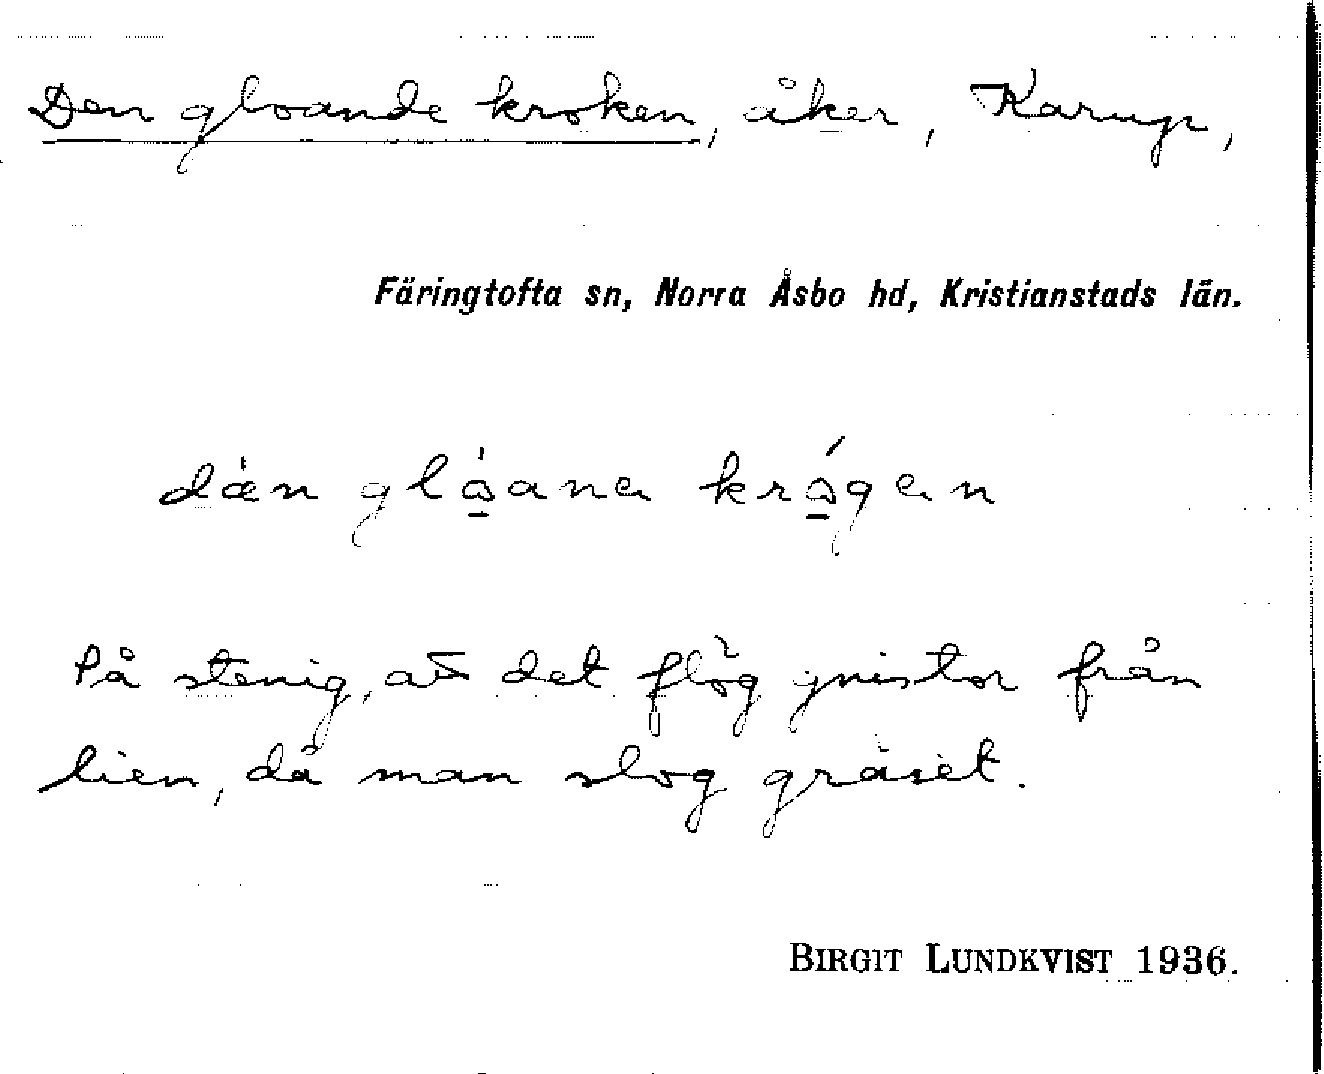 Den gloande kroken, åker, Karup,
Färingtofta sn, Norra Åsbo hd, Kristianstads län.
dǽn glǫ́ana krǫ́gan
På stenig, att det flög gnistor från
lien, då man slog gräset.
BIRGIT LUNDKVIST 1936.